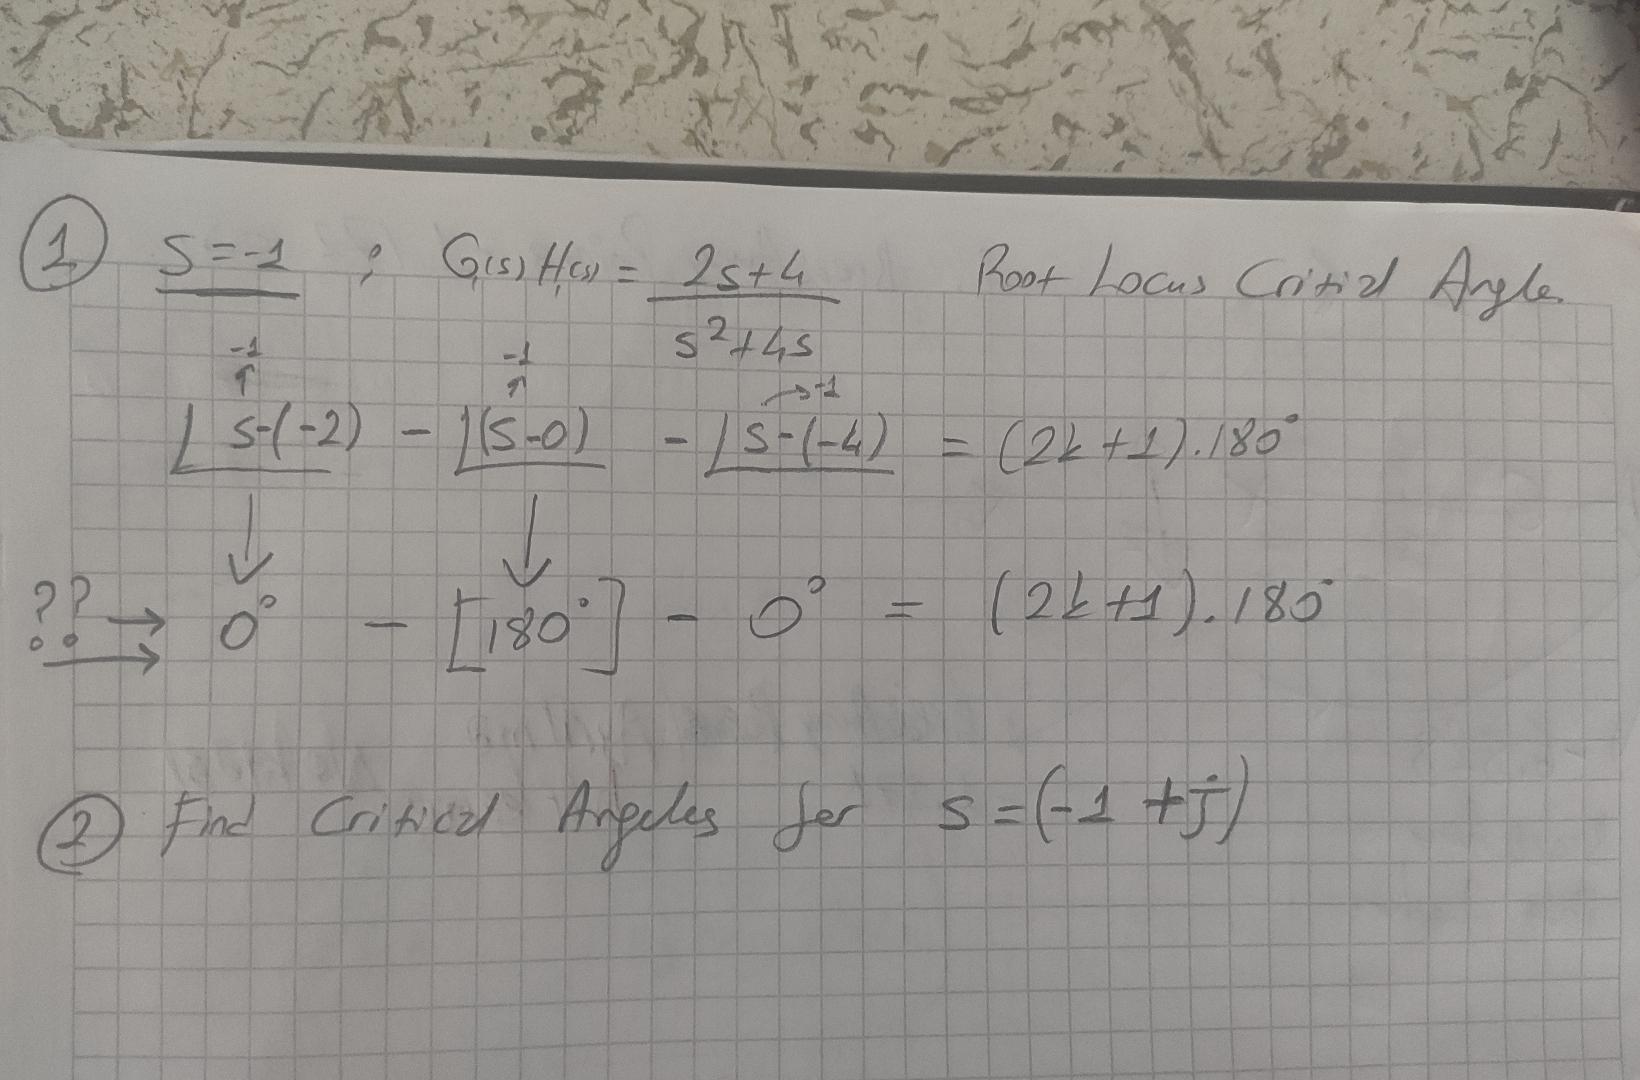 1 S=-1 ; G(s) H(s) = 2s+4 / s²+4s Root Locus Critical Angle
-1 -1 → -1
∠s-(-2) - ∠(s-0) - ∠s-(-4) = (2k+1).180°
?? → 0° - [180°] - 0° = (2k+1).180°
2 Find Critical Angeles for s=(-1+j)